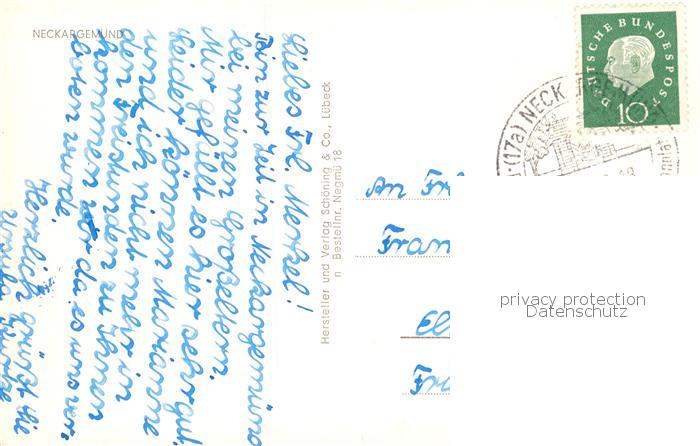 NECKARGEMÜND
Liebes Frl. Merkel!
Bin zur Zeit in Neckargemünd
bei meinen Großeltern.
Mir gefällt es hier sehr gut.
Leider können Marianne
und ich nicht mehr in
den Freistunden zu Ihnen
kommen, da es uns ver-
boten wurde.
Herzlich grüßt Sie
Hersteller und Verlag Schöning & Co., Lübeck
n Bestellnr. Negmü 18
DEUTSCHE BUNDESPOST
10
(17a) NECK
An Fr
Fran
El
Fr
privacy protection
Datenschutz